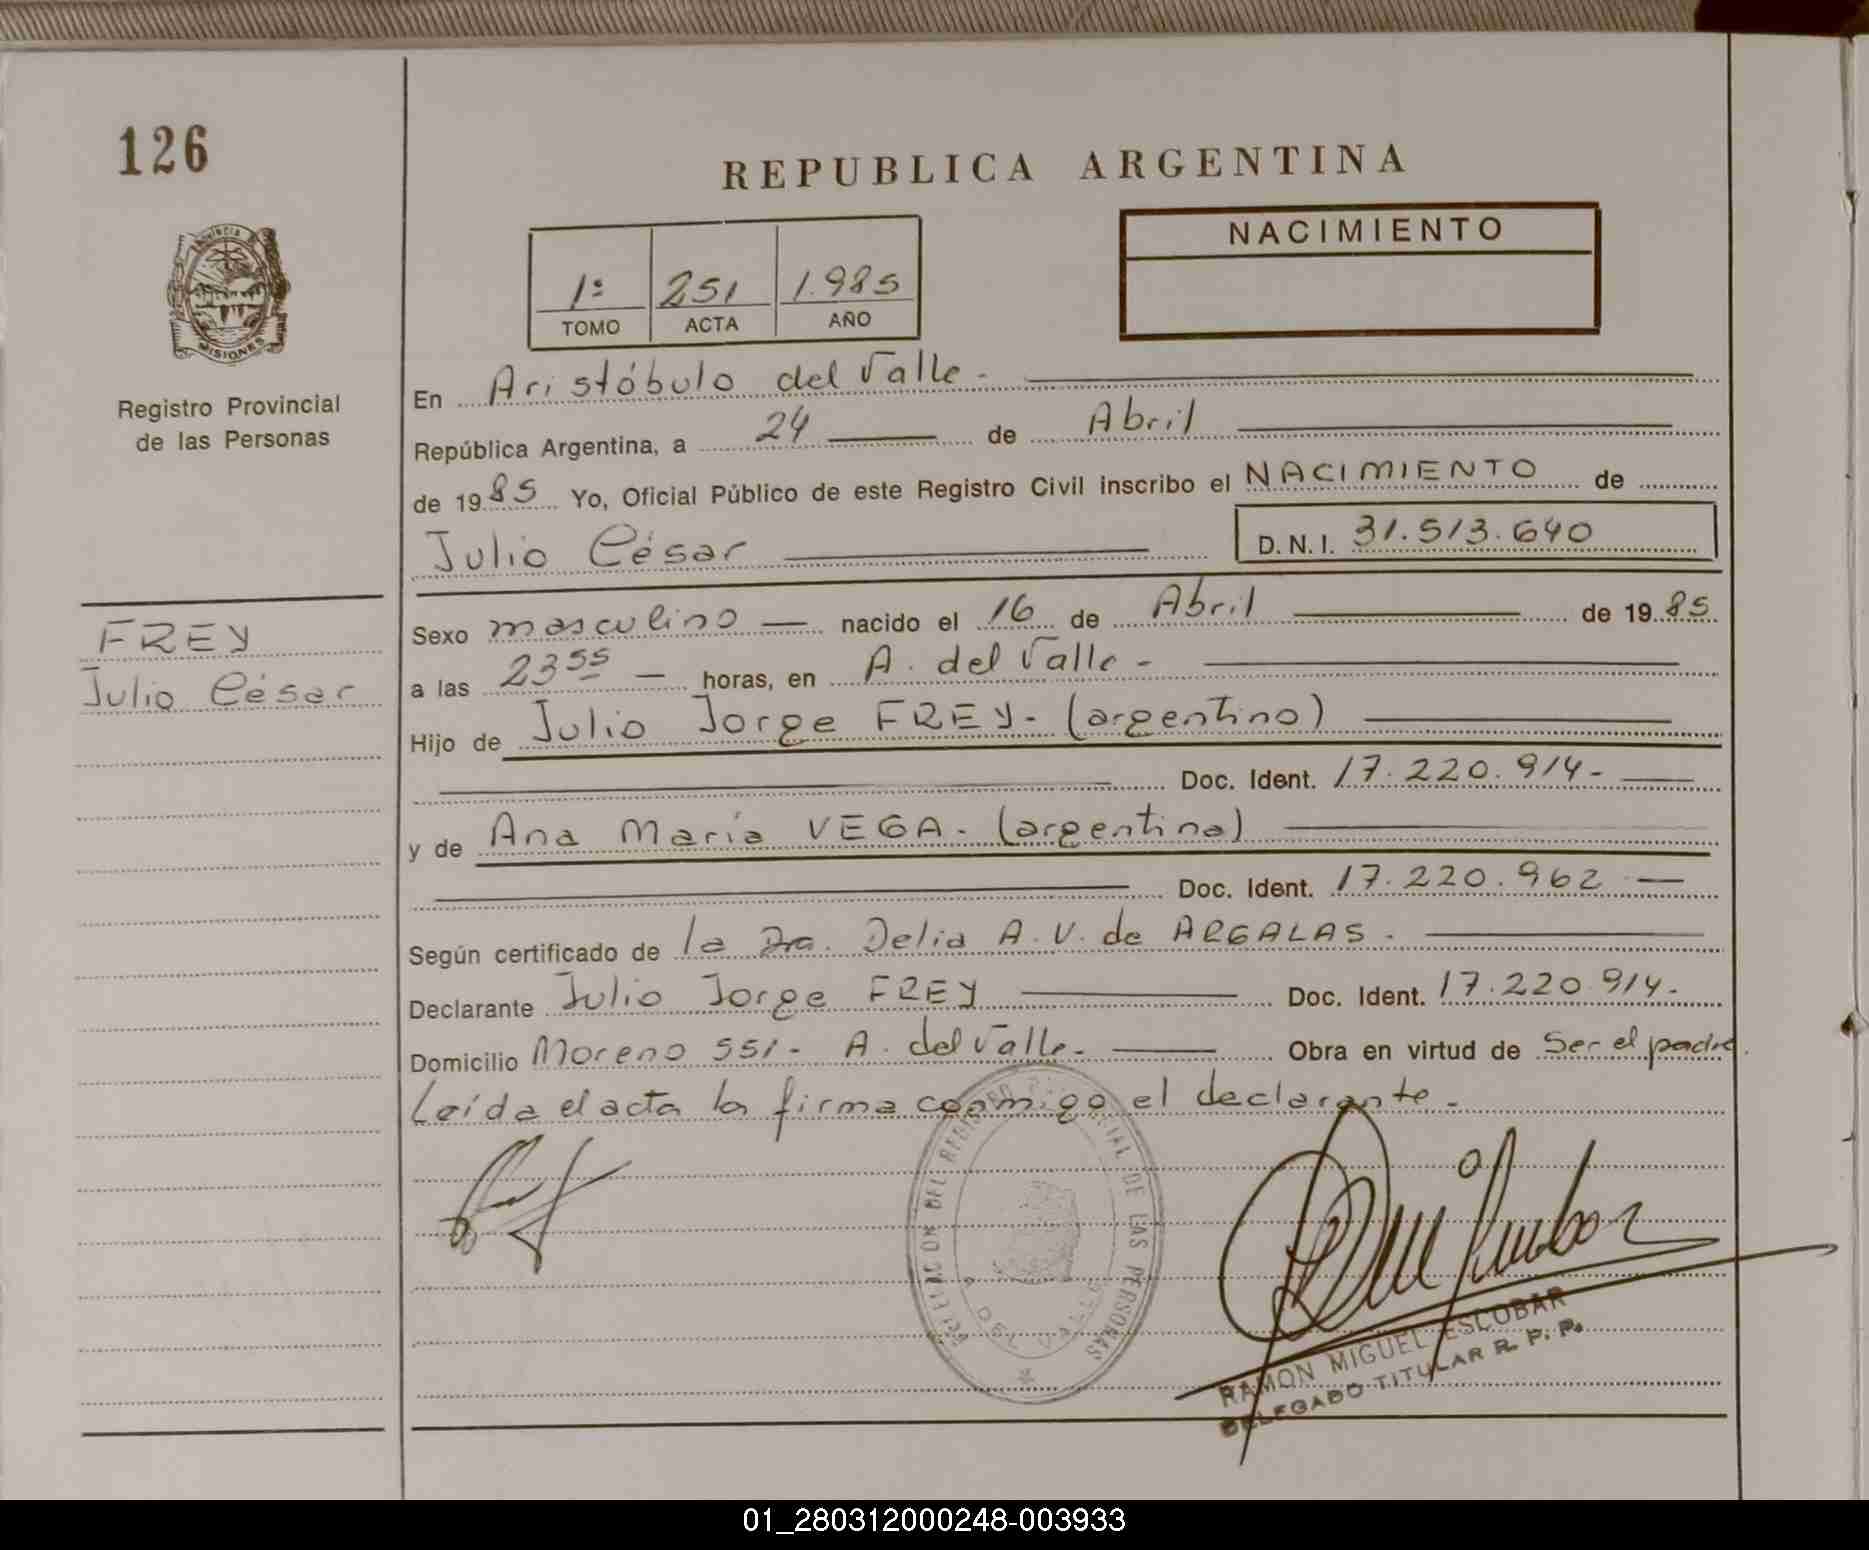 126
REPUBLICA ARGENTINA
PROVINCIA
MISIONES
Registro Provincial
de las Personas
1º 251 1.985
TOMO ACTA AÑO
NACIMIENTO
En Aristóbulo del Valle -
República Argentina, a 24 de Abril
de 1985 Yo, Oficial Público de este Registro Civil inscribo el NACIMIENTO de
Julio César D.N.I. 31.513.640
FREY
Julio César
Sexo masculino — nacido el 16 de Abril de 1985
a las 23 55 — horas, en A. del Valle -
Hijo de Julio Jorge FREY - (argentino)
Doc. Ident. 17.220.914 -
y de Ana María VEGA - (argentina)
Doc. Ident. 17.220.962 —
Según certificado de la Dra. Delia A. V. de ARGALAS -
Declarante Julio Jorge FREY Doc. Ident. 17.220.914 -
Domicilio Moreno 551 - A. del Valle - Obra en virtud de Ser el padre.
Leída el acta la firma conmigo el declarante -
DELEGACION DEL REGISTRO PROVINCIAL DE LAS PERSONAS
A. DEL VALLE
RAMON MIGUEL ESCOBAR
DELEGADO TITULAR R. P. P.
01_280312000248-003933